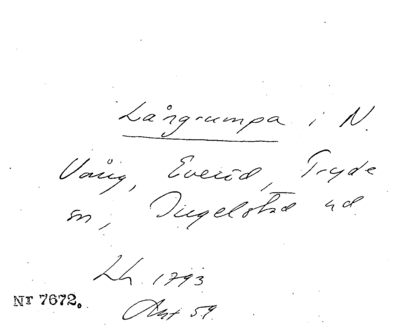 Långrumpa i N.
Vång, Everöd, Tryde
sn, Ingelstad hd
Lh 1793
Akt 59.
Nr 7672.